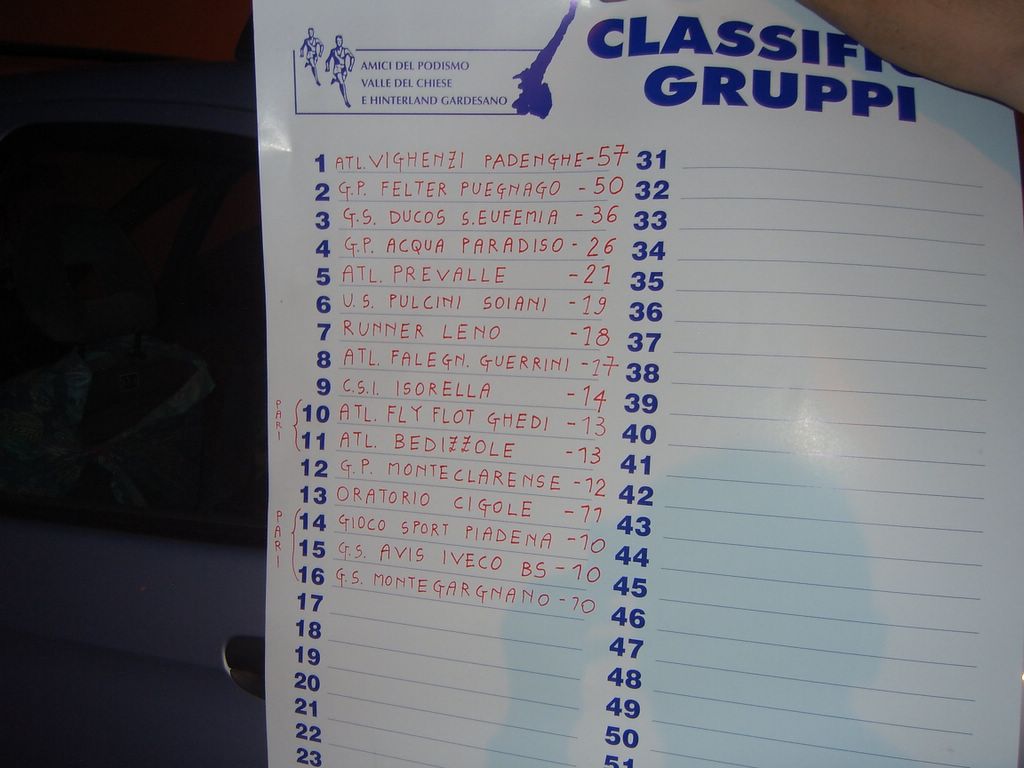 AMICI DEL PODISMO
VALLE DEL CHIESE
E HINTERLAND GARDESANO
CLASSIFI
GRUPPI
1 ATL. VIGHENZI PADENGHE-57
2 G.P. FELTER PUEGNAGO -50
3 G.S. DUCOS S.EUFEMIA -36
4 G.P. ACQUA PARADISO-26
5 ATL. PREVALLE -21
6 U.S. PULCINI SOIANI -19
7 RUNNER LENO -18
8 ATL. FALEGN. GUERRINI -17
9 C.S.I. ISORELLA -14
PARI
10 ATL. FLY FLOT GHEDI -13
11 ATL. BEDIZZOLE -13
12 G.P. MONTECLARENSE -12
13 ORATORIO CIGOLE -11
PARI
14 GIOCO SPORT PIADENA -10
15 G.S. AVIS IVECO BS-10
16 G.S. MONTEGARGNANO-10
17
18
19
20
21
22
23
31
32
33
34
35
36
37
38
39
40
41
42
43
44
45
46
47
48
49
50
51